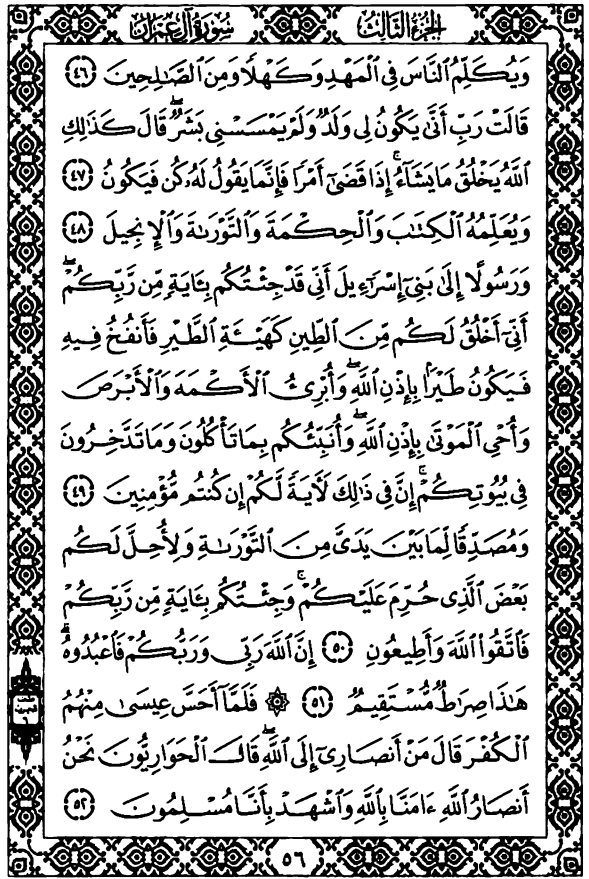 الجزء الثالث
سورة آل عمران
وَيُكَلِّمُ ٱلنَّاسَ فِى ٱلْمَهْدِ وَكَهْلًا وَمِنَ ٱلصَّٰلِحِينَ ﴿٤٦﴾
قَالَتْ رَبِّ أَنَّىٰ يَكُونُ لِى وَلَدٌ وَلَمْ يَمْسَسْنِى بَشَرٌ ۖ قَالَ كَذَٰلِكِ
ٱللَّهُ يَخْلُقُ مَا يَشَآءُ ۚ إِذَا قَضَىٰٓ أَمْرًا فَإِنَّمَا يَقُولُ لَهُۥ كُن فَيَكُونُ ﴿٤٧﴾
وَيُعَلِّمُهُ ٱلْكِتَٰبَ وَٱلْحِكْمَةَ وَٱلتَّوْرَىٰةَ وَٱلْإِنجِيلَ ﴿٤٨﴾
وَرَسُولًا إِلَىٰ بَنِىٓ إِسْرَٰٓءِيلَ أَنِّى قَدْ جِئْتُكُم بِـَٔايَةٍ مِّن رَّبِّكُمْ ۖ
أَنِّىٓ أَخْلُقُ لَكُم مِّنَ ٱلطِّينِ كَهَيْـَٔةِ ٱلطَّيْرِ فَأَنفُخُ فِيهِ
فَيَكُونُ طَيْرًۢا بِإِذْنِ ٱللَّهِ ۖ وَأُبْرِئُ ٱلْأَكْمَهَ وَٱلْأَبْرَصَ
وَأُحْىِ ٱلْمَوْتَىٰ بِإِذْنِ ٱللَّهِ ۖ وَأُنَبِّئُكُم بِمَا تَأْكُلُونَ وَمَا تَدَّخِرُونَ
فِى بُيُوتِكُمْ ۚ إِنَّ فِى ذَٰلِكَ لَـَٔايَةً لَّكُمْ إِن كُنتُم مُّؤْمِنِينَ ﴿٤٩﴾
وَمُصَدِّقًا لِّمَا بَيْنَ يَدَىَّ مِنَ ٱلتَّوْرَىٰةِ وَلِأُحِلَّ لَكُم
بَعْضَ ٱلَّذِى حُرِّمَ عَلَيْكُمْ ۚ وَجِئْتُكُم بِـَٔايَةٍ مِّن رَّبِّكُمْ
فَٱتَّقُوا۟ ٱللَّهَ وَأَطِيعُونِ ﴿٥٠﴾ إِنَّ ٱللَّهَ رَبِّى وَرَبُّكُمْ فَٱعْبُدُوهُ ۗ
هَٰذَا صِرَٰطٌ مُّسْتَقِيمٌ ﴿٥١﴾ ۞ فَلَمَّآ أَحَسَّ عِيسَىٰ مِنْهُمُ
ٱلْكُفْرَ قَالَ مَنْ أَنصَارِىٓ إِلَى ٱللَّهِ ۖ قَالَ ٱلْحَوَارِيُّونَ نَحْنُ
أَنصَارُ ٱللَّهِ ءَامَنَّا بِٱللَّهِ وَٱشْهَدْ بِأَنَّا مُسْلِمُونَ ﴿٥٢﴾
٥٦